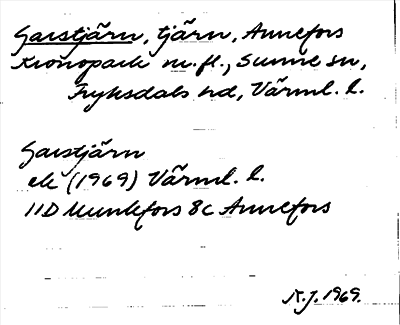 Garstjärn, tjärn, Annefors
Kronopark m.fl., Sunne sn,
Fryksdals hd, Värml. l.
Garstjärn
ek (1969) Värml. l.
11D Munkfors 8c Annefors
N.J. 1969.